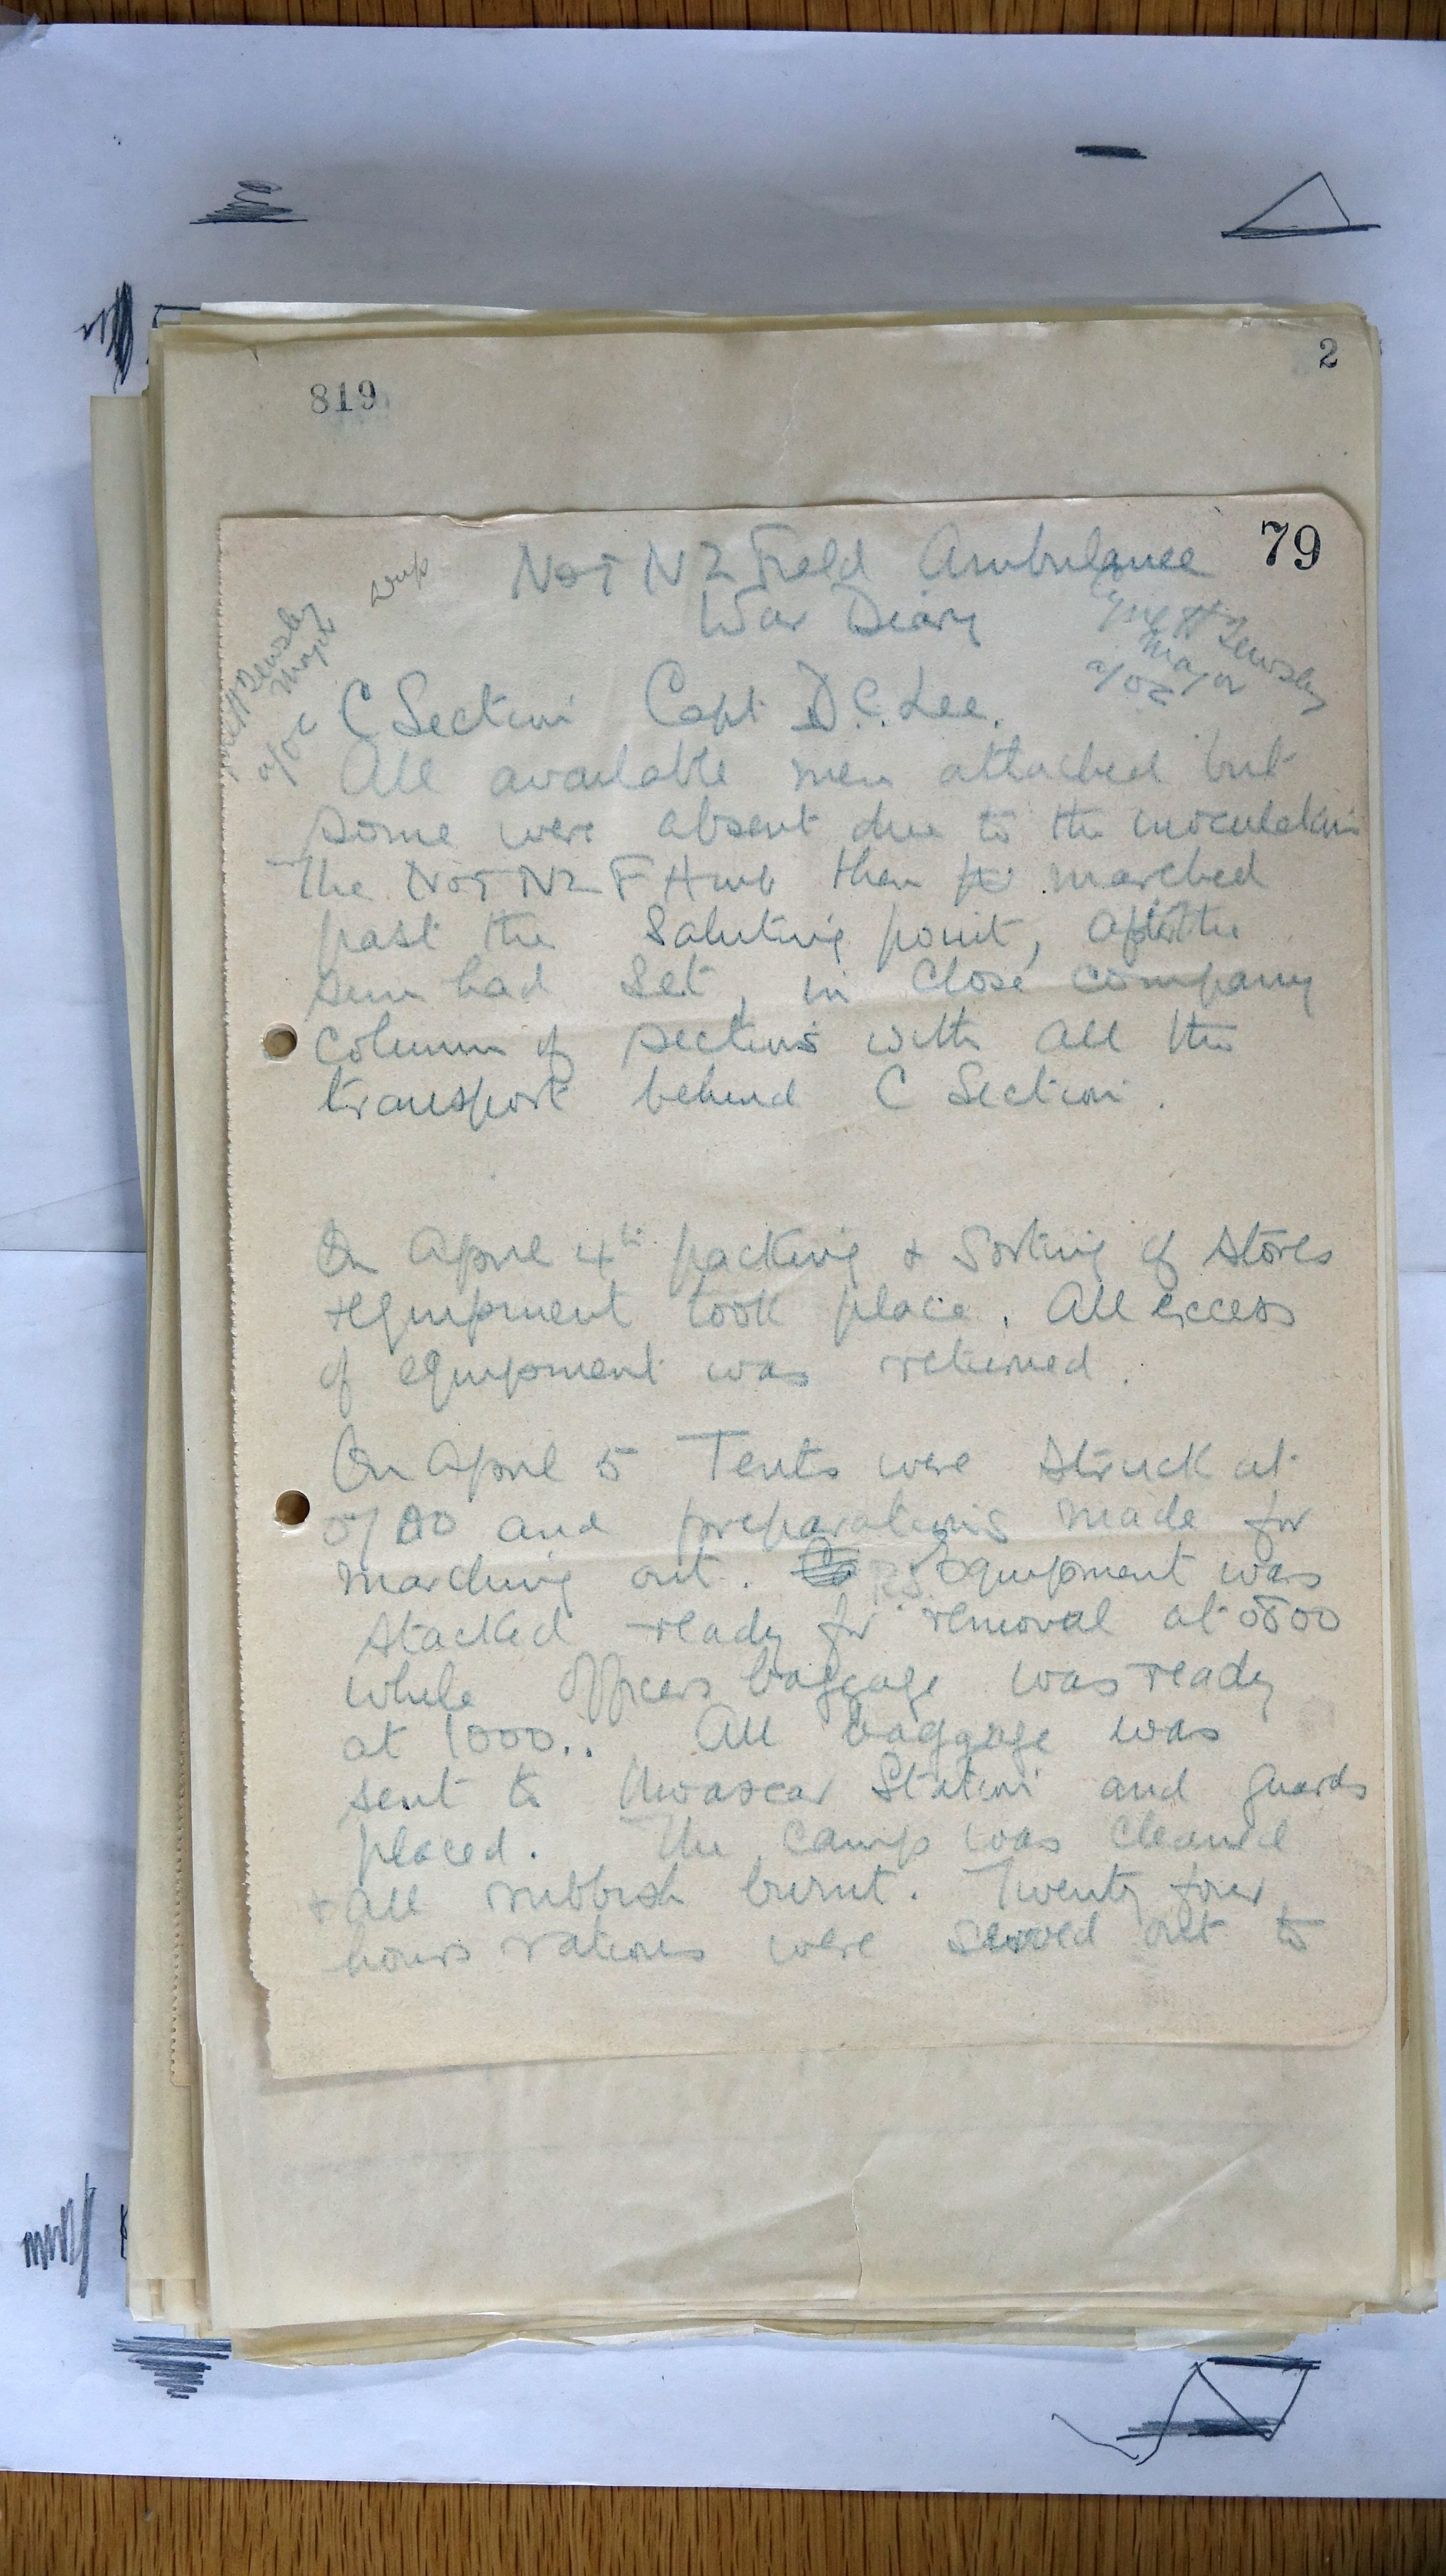 819
2
79
Dup
No 1 NZ Field Ambulance
War Diary
Major
a/OC
Major
a/OC
C Section Capt D.C. Lee.
All available men attached but
some were absent due to the inoculation
The No 1 NZ F Amb then marched
past the saluting point, after the
sun had set, in close company
column of sections with all the
transport behind C Section.
On April 4th packing & sorting of stores
& equipment took place. All excess
of equipment was returned.
On April 5 Tents were struck at
and preparations made for
marching out. Equipment was
stacked ready for removal at 0800
while officers baggage was ready
at 1000.. All baggage was
sent to Moascar Station and guards
placed. The camp was cleaned
& all rubbish burnt. Twenty four
hours rations were served out to